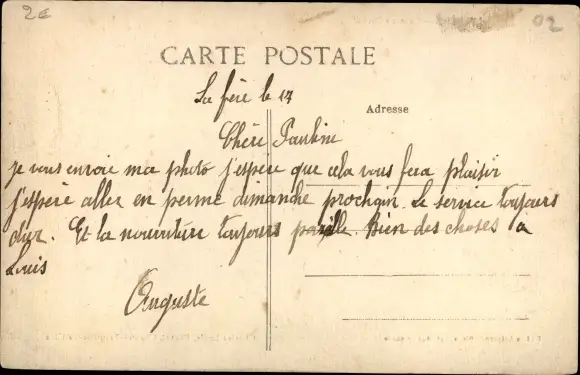 2e
02
CARTE POSTALE
La fère le 17
Adresse
Chère Pauline
je vous envoie ma photo j'espère que cela vous fera plaisir
j'espère aller en perme dimanche prochain. Le service toujours
dur. Et la nourriture toujours pareille Bien des choses a
Louis
Auguste